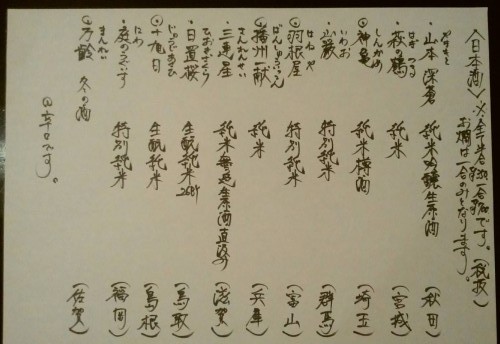 〈日本酒〉
お燗は一合のみとなります。
やまもと
・山本 深蒼 純米吟醸生原酒 (秋田)
はぎ つる
・萩の鶴 純米 (宮城)
しんかめ
・神亀 純米樽酒 (埼玉)
・山巌 特別純米 (群馬)
はね や
・羽根屋 特別純米 (富山)
ばんしゅういっこん
・播州一献 純米 (兵庫)
さんれんせい
・三連星 純米無花生原酒直汲み (滋賀)
ひおきざくら
・日置桜 生酛純米 (鳥取)
じゅうじあさひ
・十旭日 生酛純米 (島根)
にわ
・庭のうぐいす 特別純米 (福岡)
まんれい
・万齢 冬の酒 (佐賀)
辛口です。